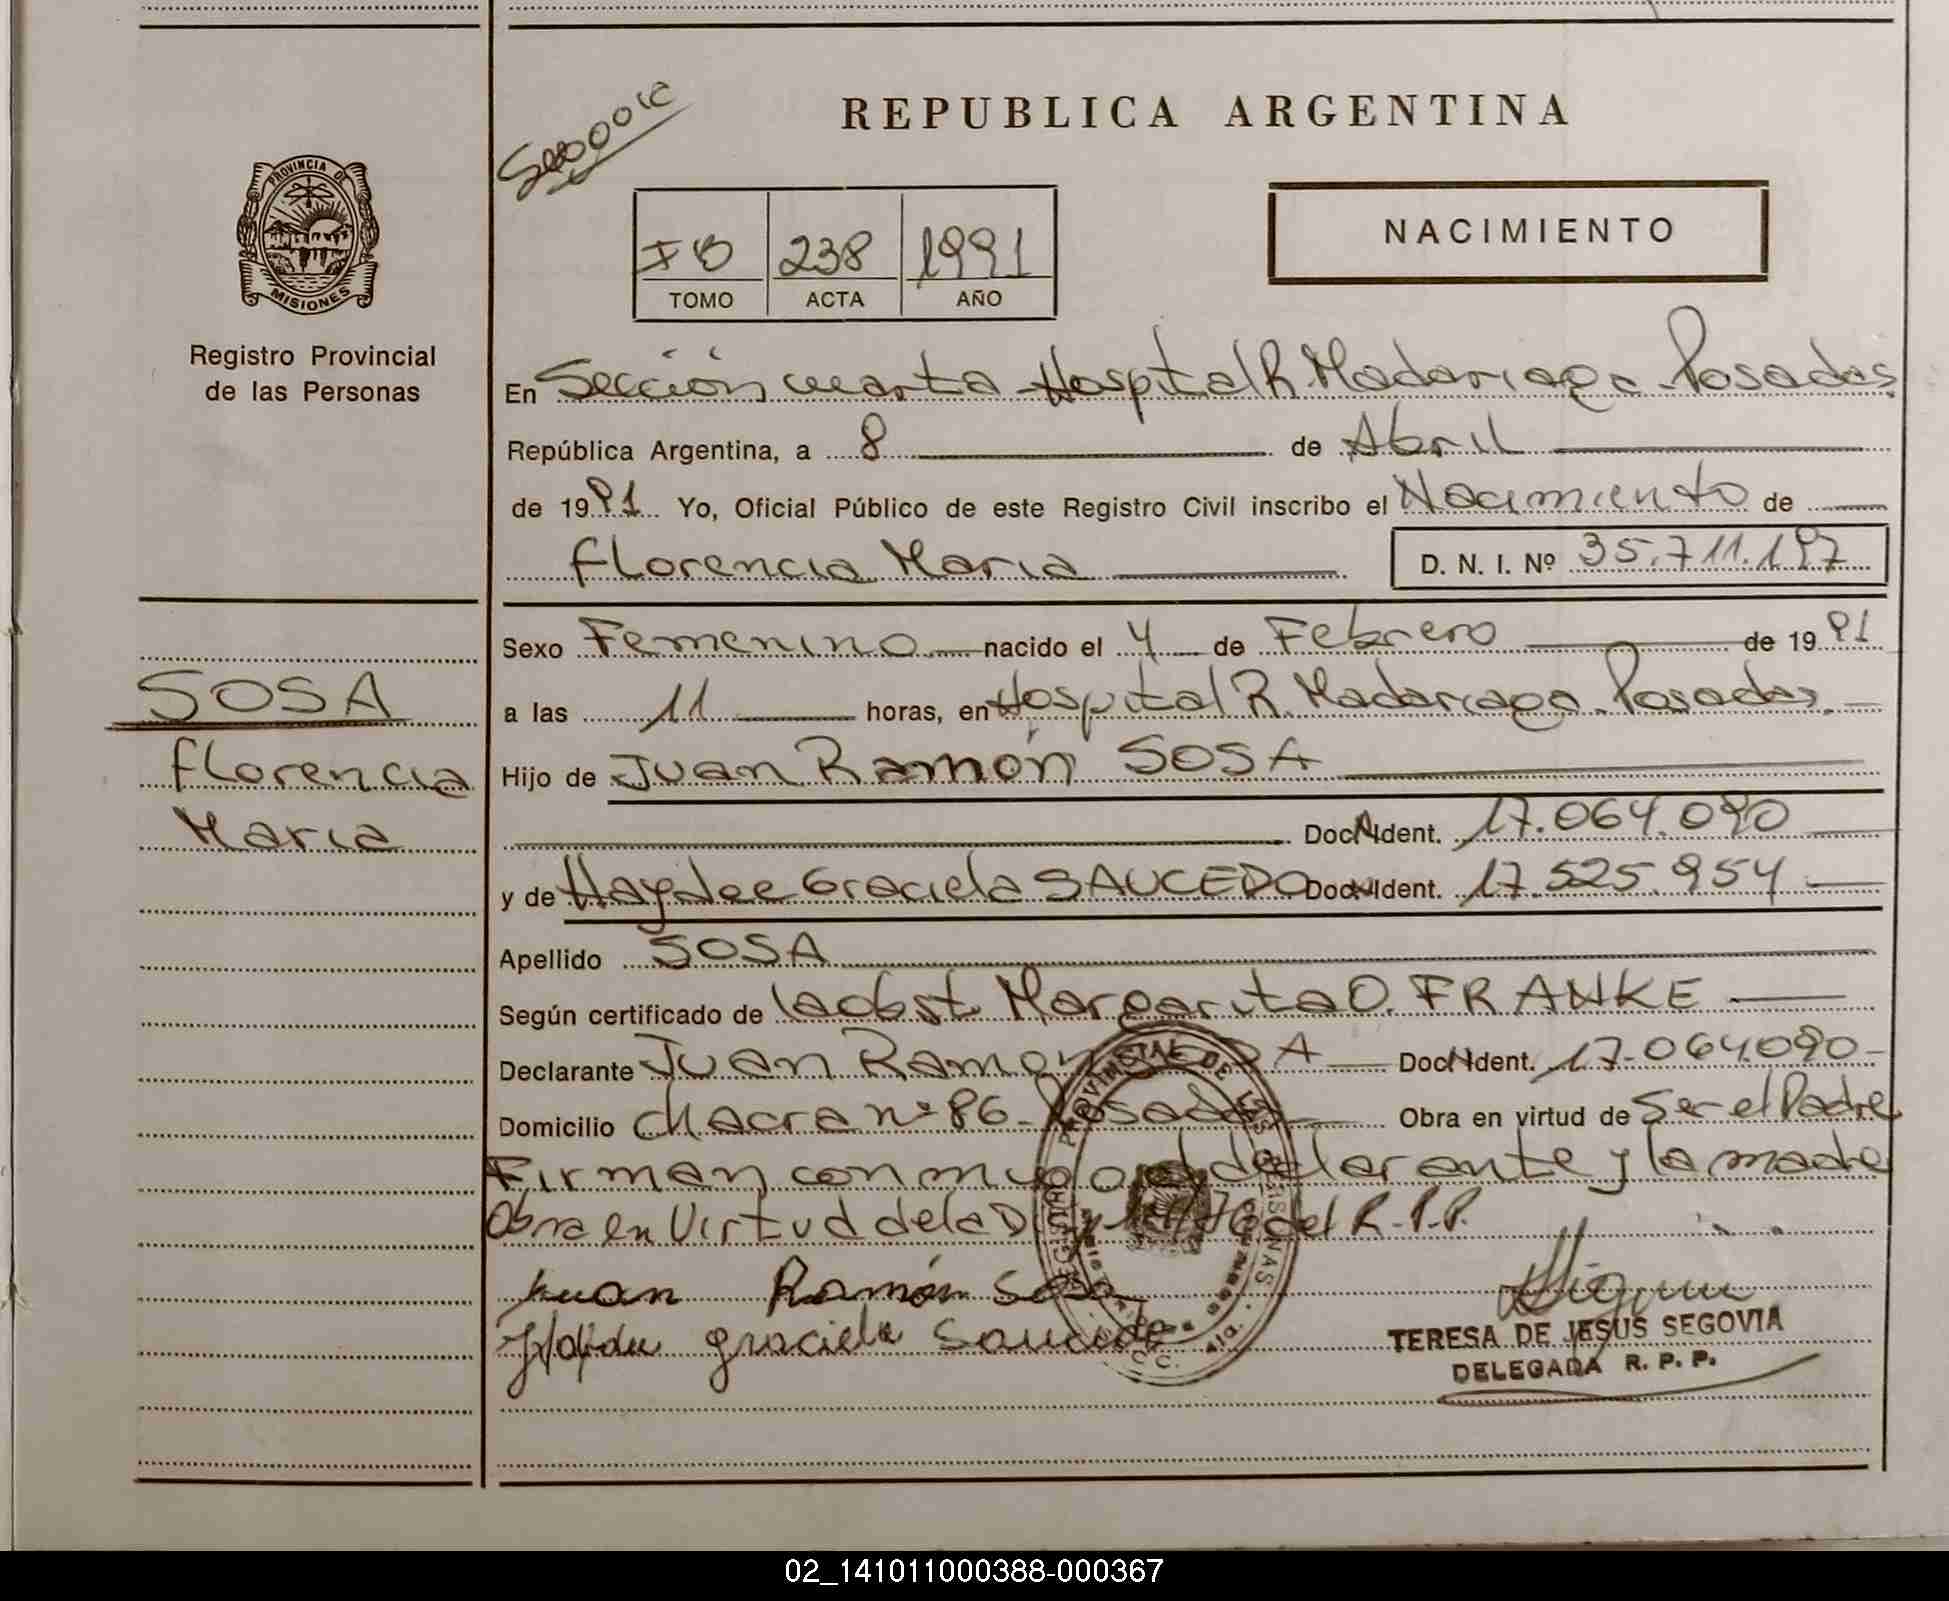 REPUBLICA ARGENTINA
PROVINCIA DE
MISIONES
Registro Provincial
de las Personas
238 1991
TOMO ACTA AÑO
NACIMIENTO
En Sección cuarta Hospital R. Madariaga Posadas
República Argentina, a 8 de Abril
de 1991 Yo, Oficial Público de este Registro Civil inscribo el Nacimiento de
Florencia Maria D. N. I. Nº 35.711.197
Sexo Femenino nacido el 4 de Febrero de 1991
SOSA
Florencia
Maria
a las 11 horas, en Hospital R. Madariaga Posadas.
Hijo de Juan Ramón SOSA
Doc. Ident. 17.064.090
y de Haydee Graciela SAUCEDO Doc. Ident. 17.525.954
Apellido SOSA
Según certificado de la obst Margarita O. FRANKE
Declarante Juan Ramon SOSA Doc. Ident. 17.064.090
Domicilio Chacra nº 86 Posadas Obra en virtud de Ser el Padre
Firman conmigo el declarante y la madre
Obra en Virtud de la del R.P.P.
Juan Ramón Sosa
Haydee graciela Saucedo
TERESA DE JESUS SEGOVIA
DELEGADA R. P. P.
02_141011000388-000367